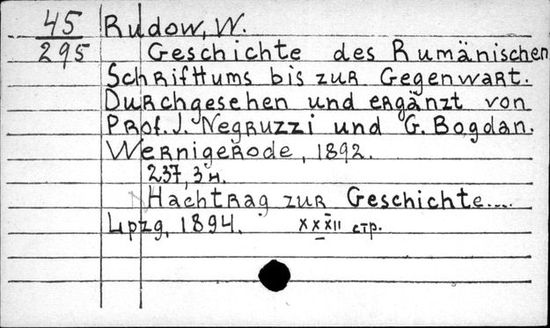 45 Rudow, W.
295 Geschichte des Rumänischen
Schrifttums bis zur Gegenwart.
Durchgesehen und ergänzt von
Prof. J. Negruzzi und G. Bogdan.
Wernigerode, 1892.
237, 3 н.
Nachtrag zur Geschichte....
Lpzg, 1894. XXXII стр.